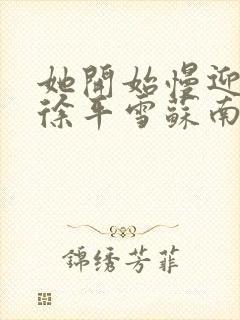 她開始慢迎
徐平雪蘇南
錦绣芳菲